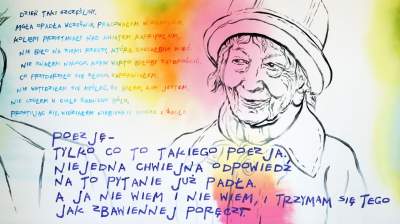 DZIEŃ TAKI SZCZĘŚLIWY.
MGŁA OPADŁA WCZEŚNIE, PRACOWAŁEM W OGRODZIE.
KOLIBRY PRZYSTAWAŁY NAD KWIATEM KAPRIFOLIUM.
NIE BYŁO NA ZIEMI RZECZY, KTÓRĄ CHCIAŁBYM MIEĆ.
NIE ZNAŁEM NIKOGO, KOMU WARTO BYŁOBY ZAZDROŚCIĆ.
CO PRZYDARZYŁO SIĘ ZŁEGO, ZAPOMNIAŁEM.
NIE WSTYDZIŁEM SIĘ MYŚLEĆ, ŻE BYŁEM, KIM JESTEM.
NIE CZUŁEM W CIELE ŻADNEGO BÓLU.
PROSTUJĄC SIĘ, WIDZIAŁEM NIEBIESKIE MORZE I ŻAGLE.
POEZJĘ-
TYLKO CO TO TAKIEGO POEZJA.
NIEJEDNA CHWIEJNA ODPOWIEDŹ
NA TO PYTANIE JUŻ PADŁA.
A JA NIE WIEM I NIE WIEM, I TRZYMAM SIĘ TEGO
JAK ZBAWIENNEJ PORĘCZY